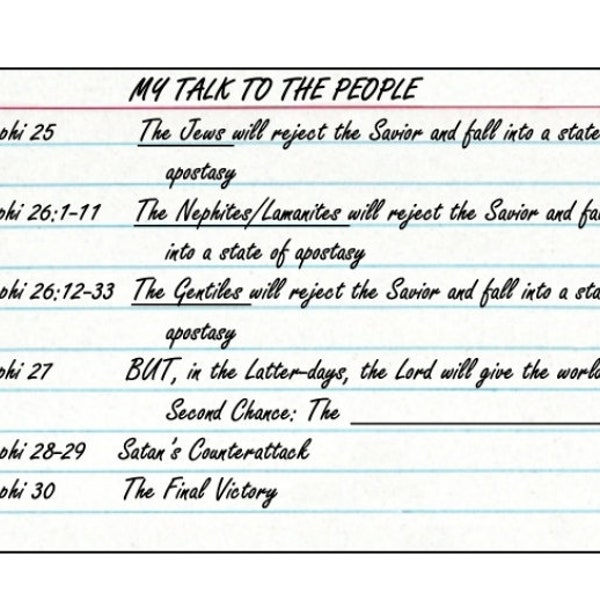 MY TALK TO THE PEOPLE
phi 25 The Jews will reject the Savior and fall into a state
apostasy
phi 26:1-11 The Nephites/Lamanites will reject the Savior and fa
into a state of apostasy
phi 26:12-33 The Gentiles will reject the Savior and fall into a sta
apostasy
phi 27 BUT, in the Latter-days, the Lord will give the world
Second Chance: The
phi 28-29 Satan's Counterattack
phi 30 The Final Victory